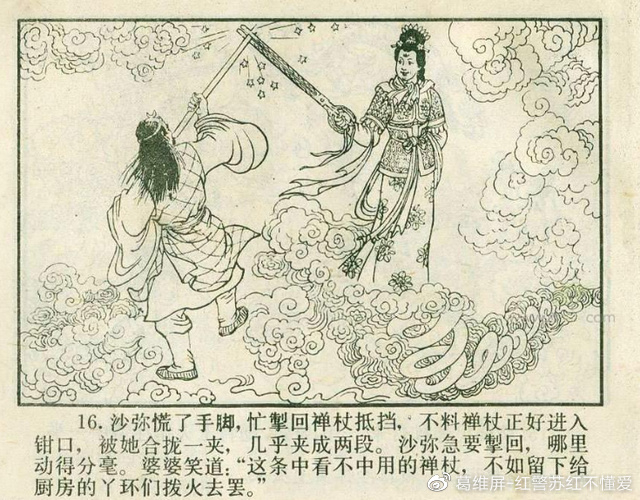 16. 沙弥慌了手脚,忙掣回禅杖抵挡,不料禅杖正好进入
钳口，被她合拢一夹，几乎夹成两段。沙弥急要掣回，哪里
动得分毫。婆婆笑道:“这条中看不中用的禅杖，不如留下给
厨房的丫环们拨火去罢。”
@葛维屏-红警苏红不懂爱